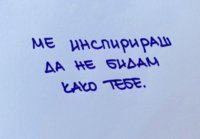 МЕ ИНСПИРИРАШ
ДА НЕ БИДАМ
КАКО ТЕБЕ.